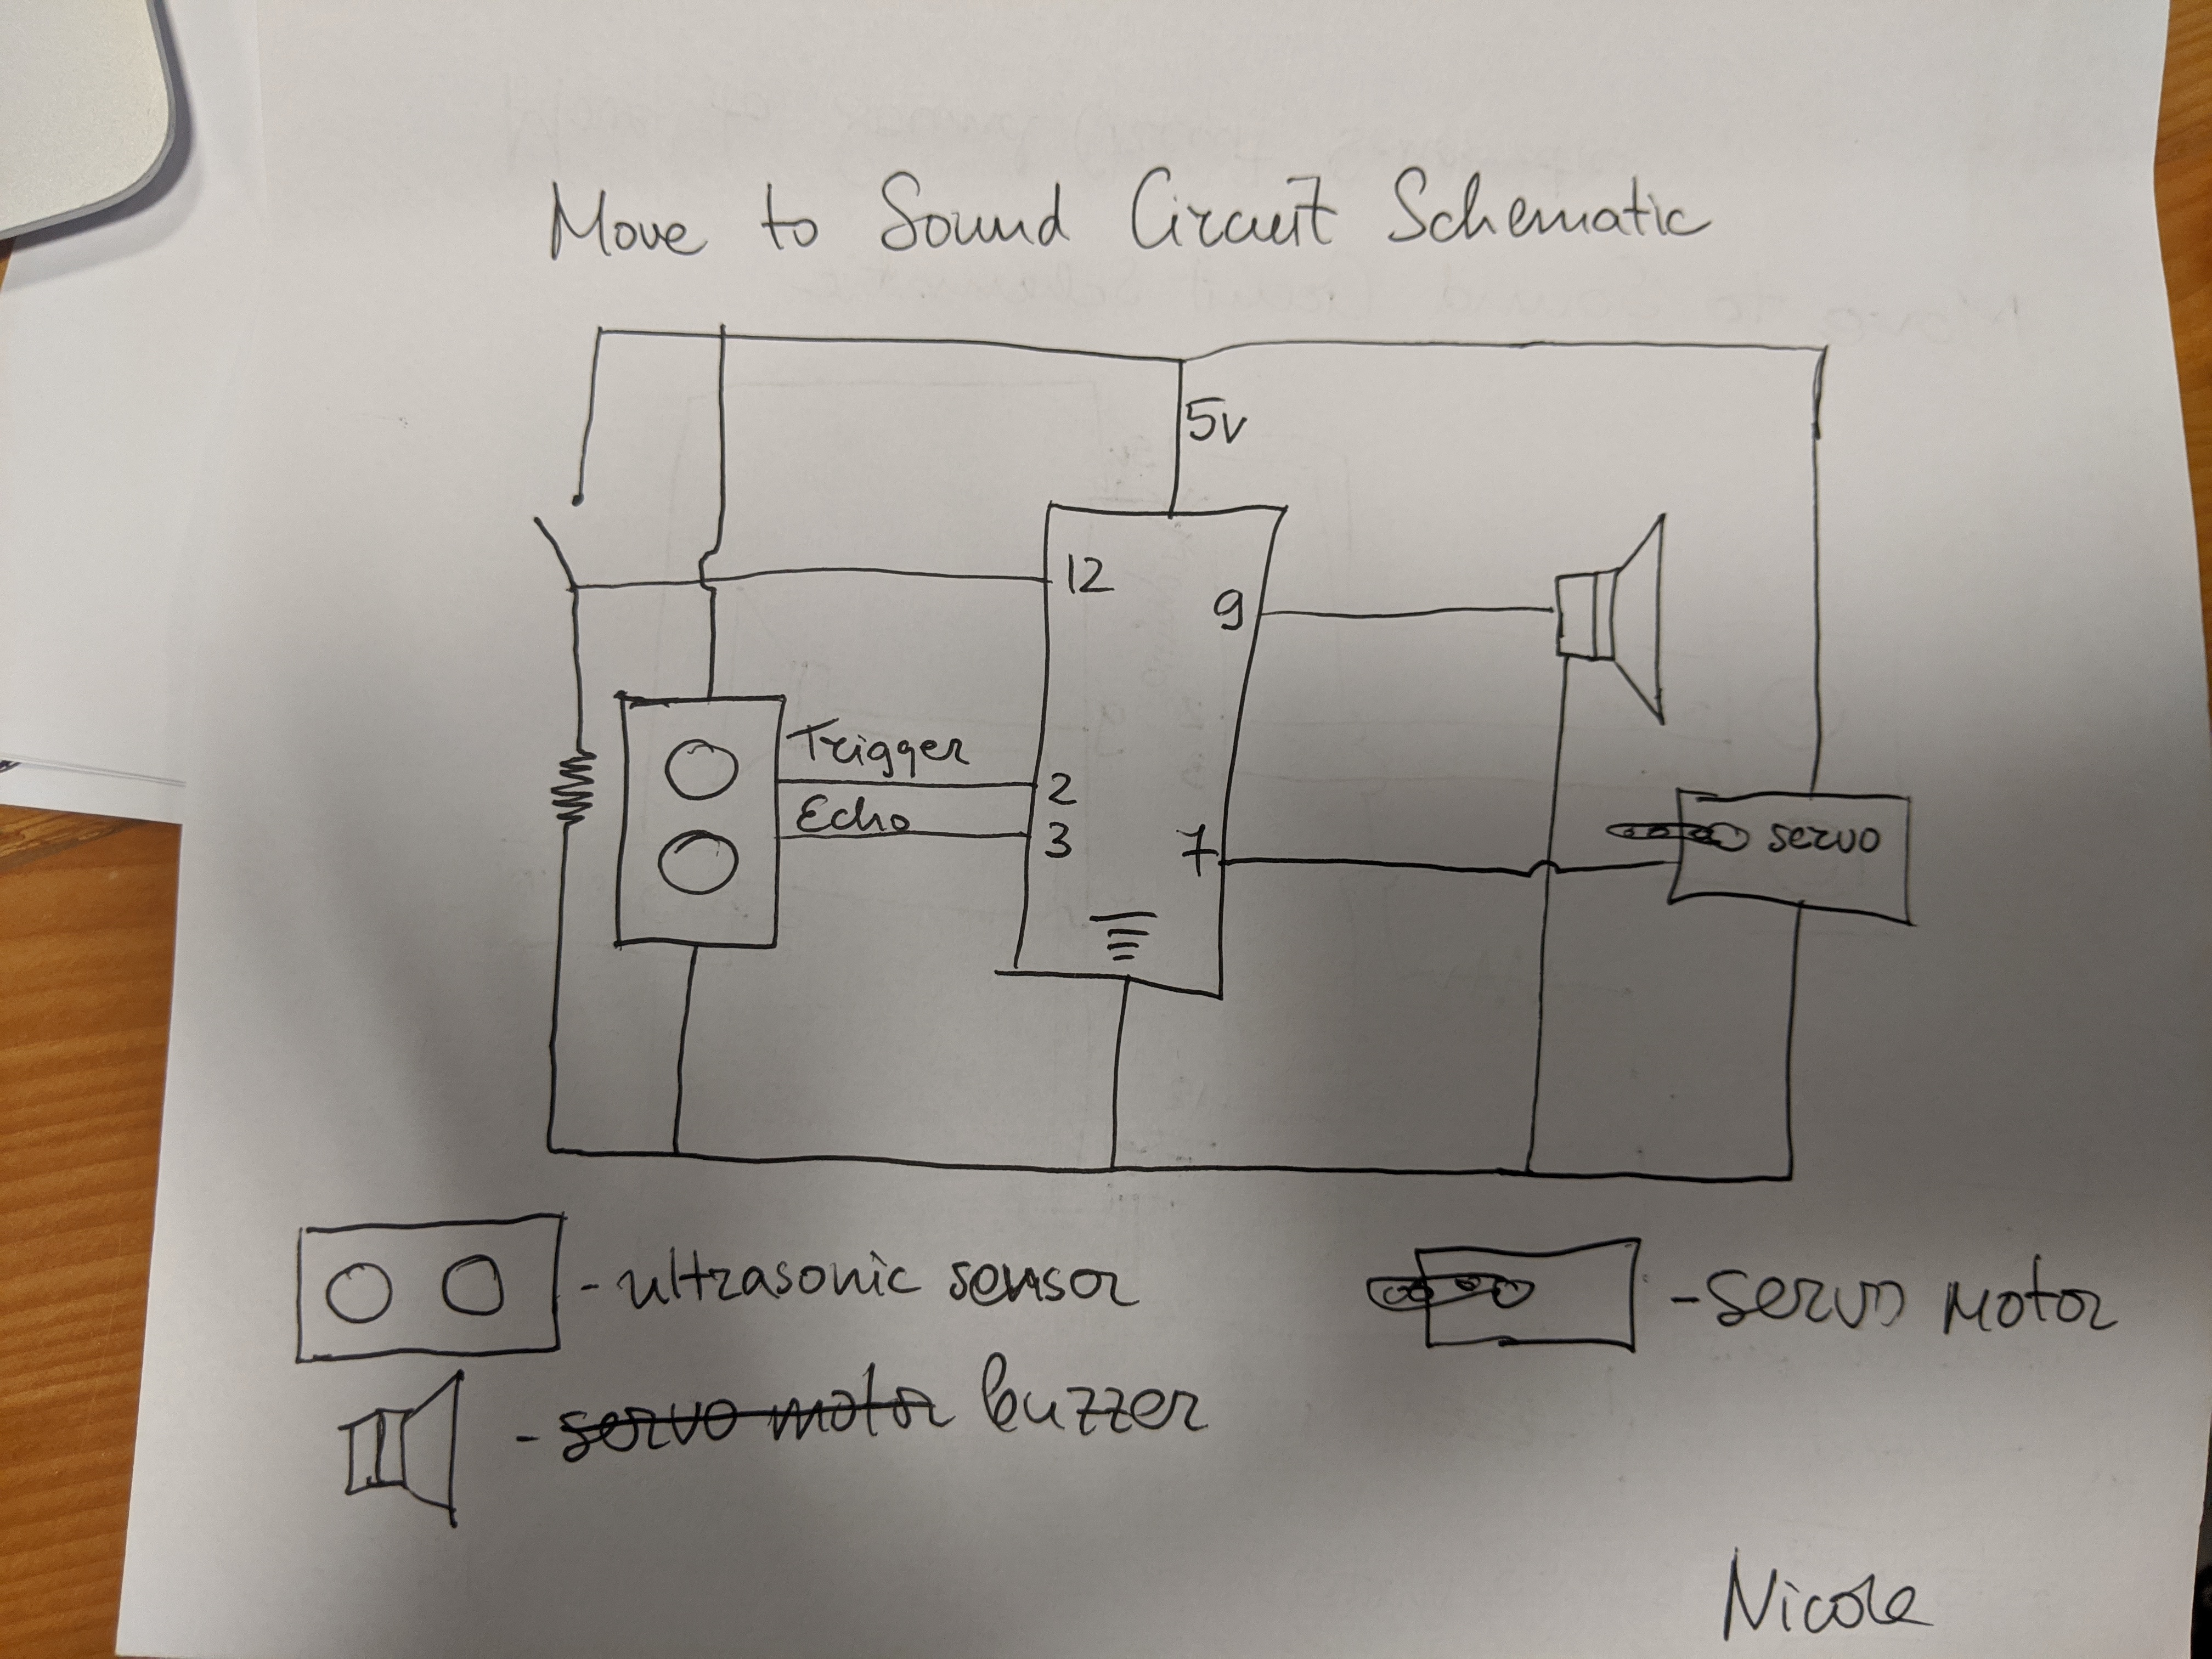 Move to Sound Circuit Schematic
5v
12
9
Trigger
2
Echo
3
7
servo
- ultrasonic sensor
- servo motor
- servo motor buzzer
Nicole